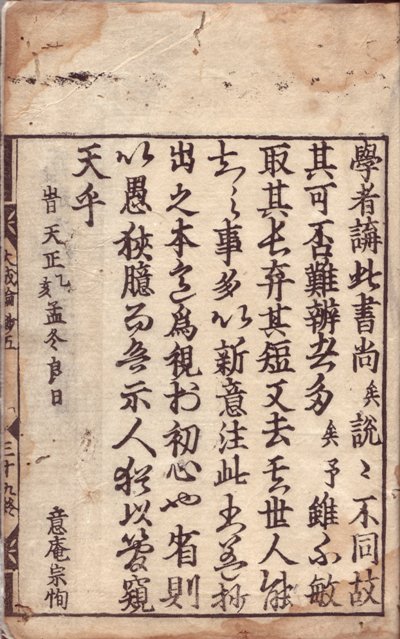 學者講此書尚矣説〻不同故
其可否難辨者多矣予雖不敏
取其長弃其短又去其世人能
知之事多以新意注此書蓋抄
出之本意為視於初心也省則
以愚狹臆而示人猶以管窺
天乎
旹天正乙亥孟冬良日 意庵宗恂
大成論抄五 三十九終